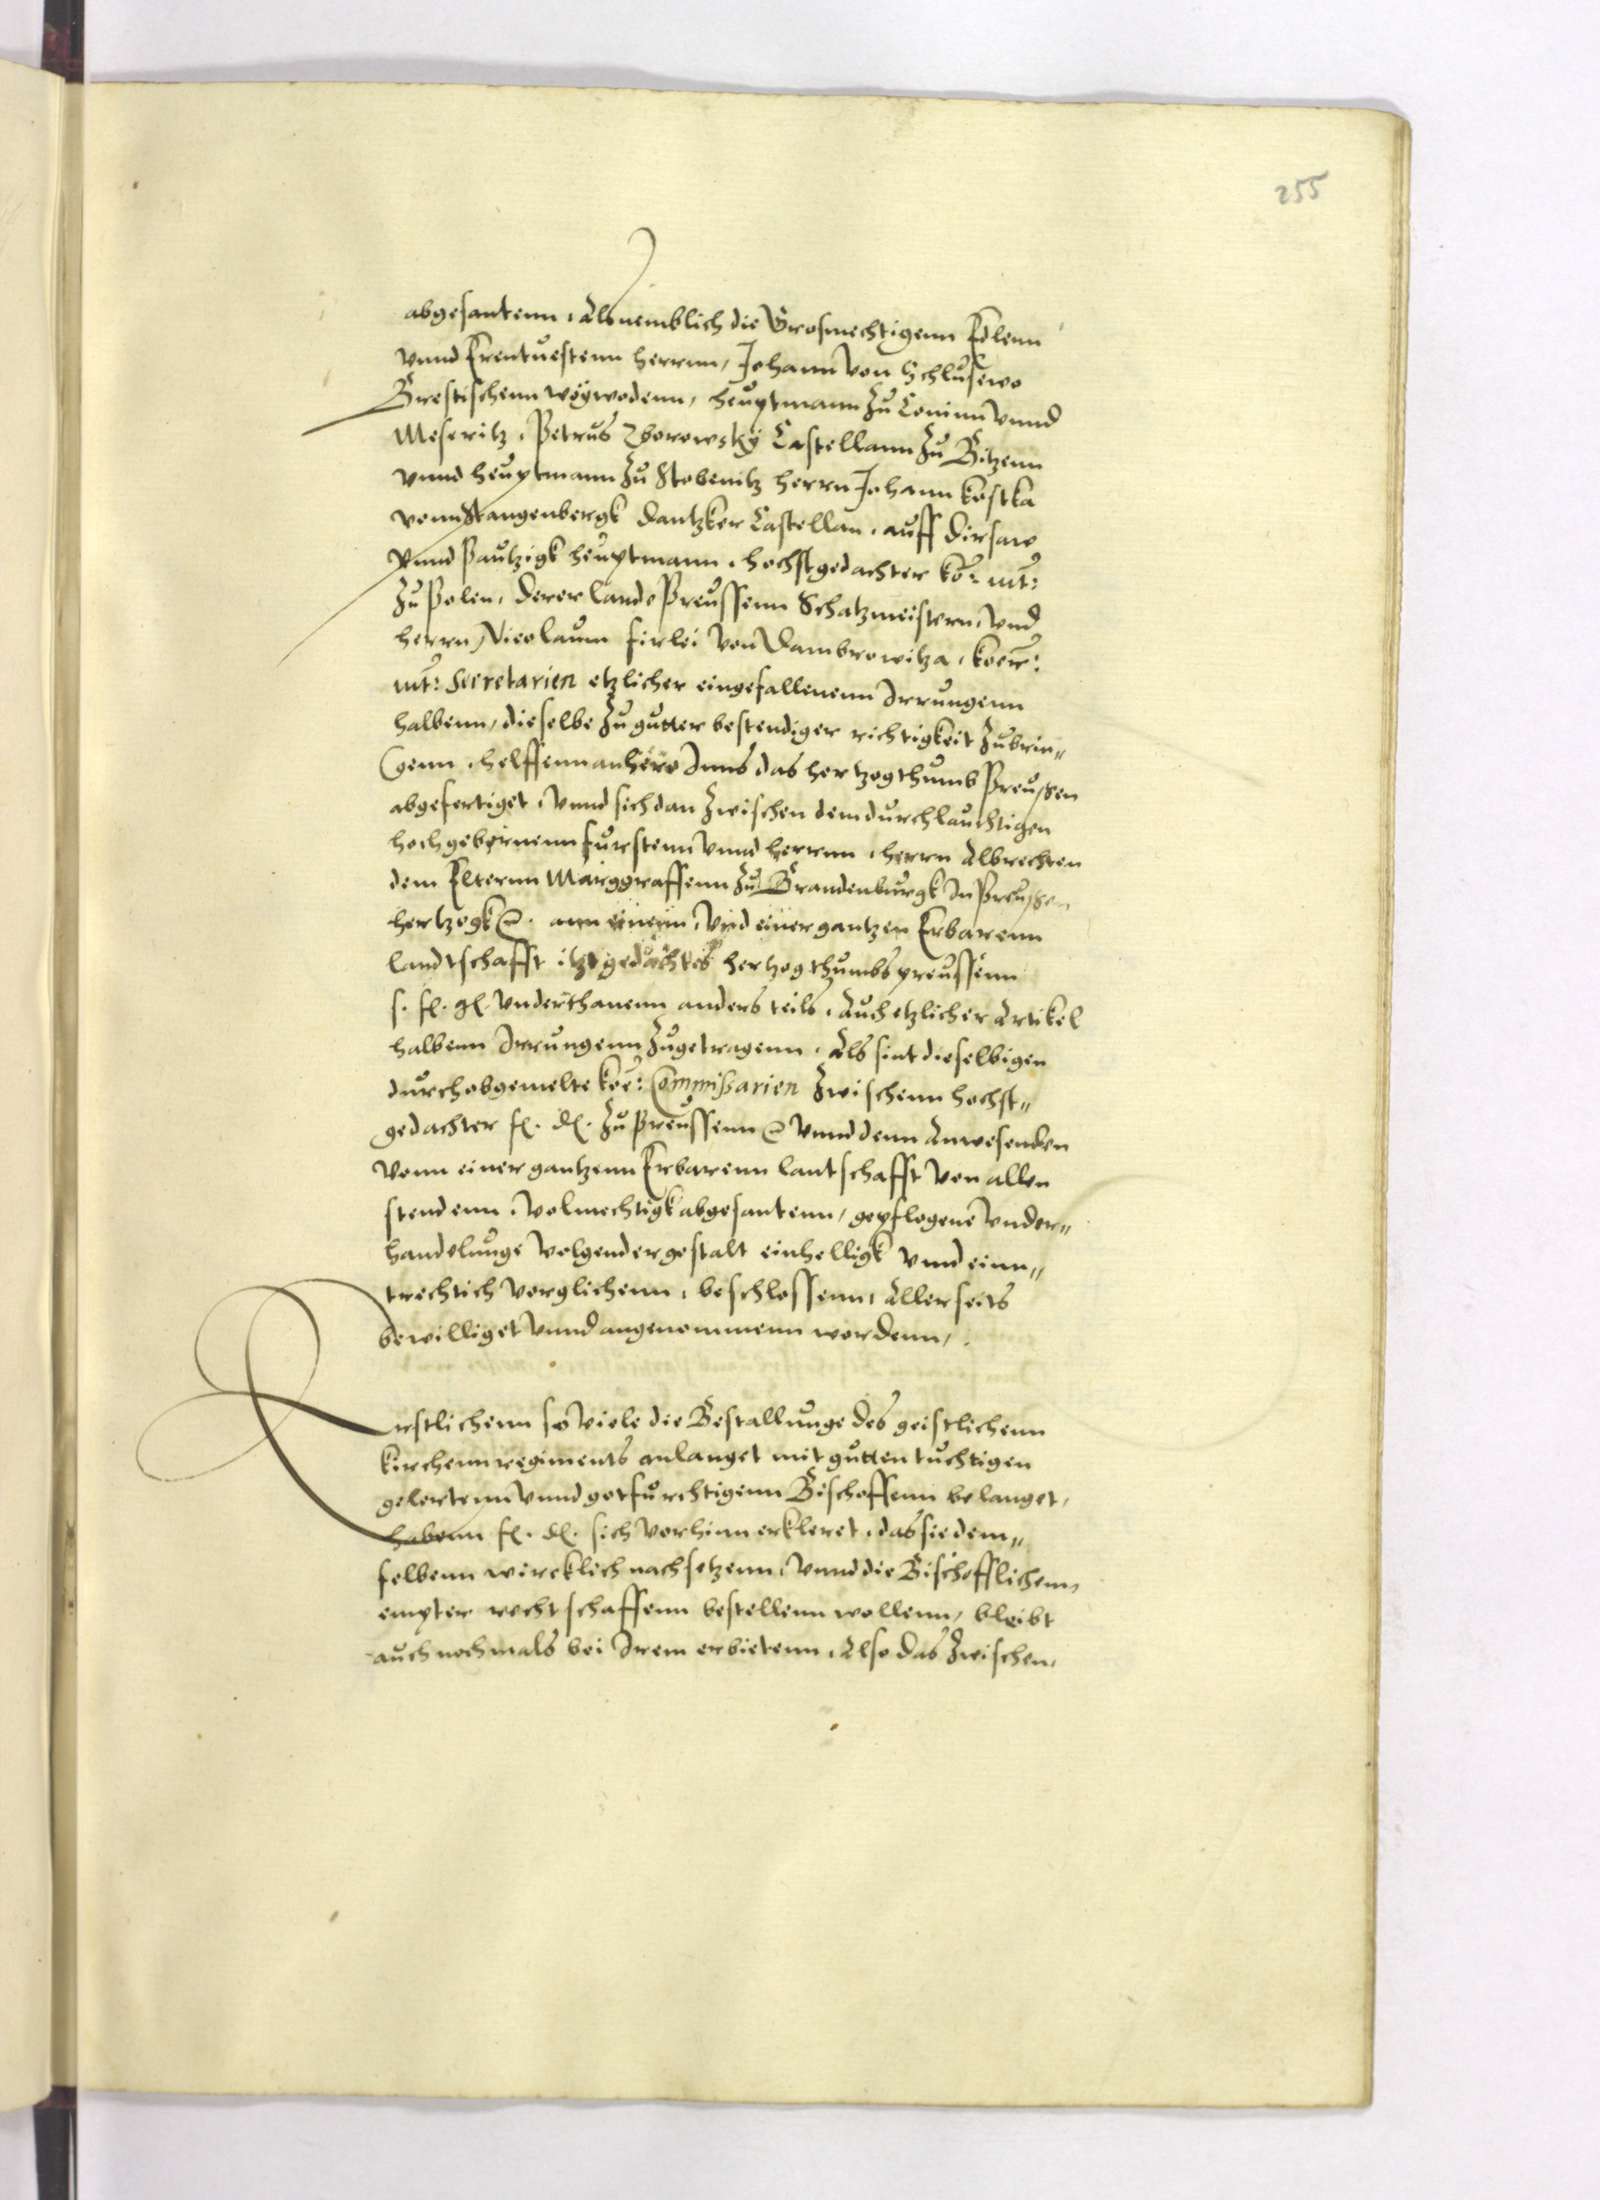 255
abgesantenn, Als nemblich die Grosmechtigenn Edlenn
vnnd Erentuestenn herrnn, Johann von Schlusewo
Brestischenn woÿwodenn, heuptmann zu Coninn vnnd
Meseritz, Petrus Zborowskÿ Castellann zu Bitzenn
vnnd heuptmann zu Stobenitz herrn Johann kostka
vonn Stangenbergk Dantzker Castellan, auff Dirsaw
vnnd Pautzigk heuptmann, hochstgedachter ko: mt:
zu Polen, Derer lande Preussenn Schatzmeistern, vnd
herrn, Nicolaum Firlei von Dambrowitza, koer:
mt: Secretarien etzlicher eingefallenenn Irrungenn
halbenn, dieselbe zu gutter bestendiger richtigkeit zubrin„
genn, helffenn anhero Inns das hertzogthumb Preussen
abgefertiget, vnnd sich dan zwischen dem durchlauchtigen
hochgebornenn furstenn vnnd herrnn, herrn Albrechten
dem Elternn Marggraffenn zu Brandenburgk In Preussen
hertzogk ann einem, vnd einer gantzen Erbarenn
landtschafft itzt gedachtes hertzogthumbs preussenn
f. gl. vnderthanenn anders teils, Auch etzlicher Artikel
halbenn Irrungenn zugetragenn, Als sint dieselbigen
durch obgemelte koe: Commissarien zwischenn hochst„
gedachter f. d. zu preussenn vnnd denn Anwesenden
vonn einer gantzenn Erbarenn lantschafft von allen
stendenn, volmechtigk abgesantenn, gepflogene vnder„
handelunge volgender gestalt einhelligk vnnd einn„
trechtich verglichenn, beschlossenn, Allerseits
bewilliget vnnd angenommenn wordenn,
Erstlichenn so viele die Bestallunge des geistlichenn
kirchennregiments anlanget mit gutten tuchtigen
gelertenn vnnd gotfurchtigenn Bischoffenn belanget,
habenn f. d. sich vorhinn erkleret, das sie dem„
selbenn wircklich nachsetzenn, vnnd die Bischofflichenn,
empter rechtschaffenn bestellenn wollenn, bleibt
auch nochmals bei Irem erbietenn, Also das zwischen,